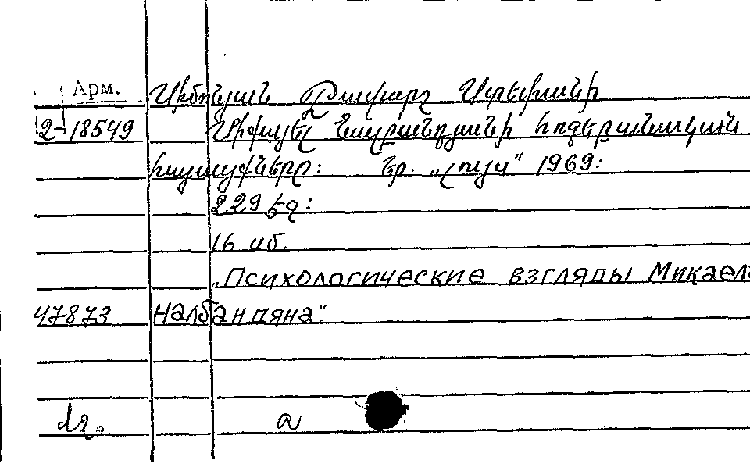 Арм.
Սիմոնյան Ռաֆայել Ստեփանի
2-18549 Միքայել Նալբանդյանի հոգեբանական
հայացքները: Եր. „Լույս" 1969:
229 էջ:
16 սմ.
„Психологические взгляды Микаела
47873 Налбандяна".
а